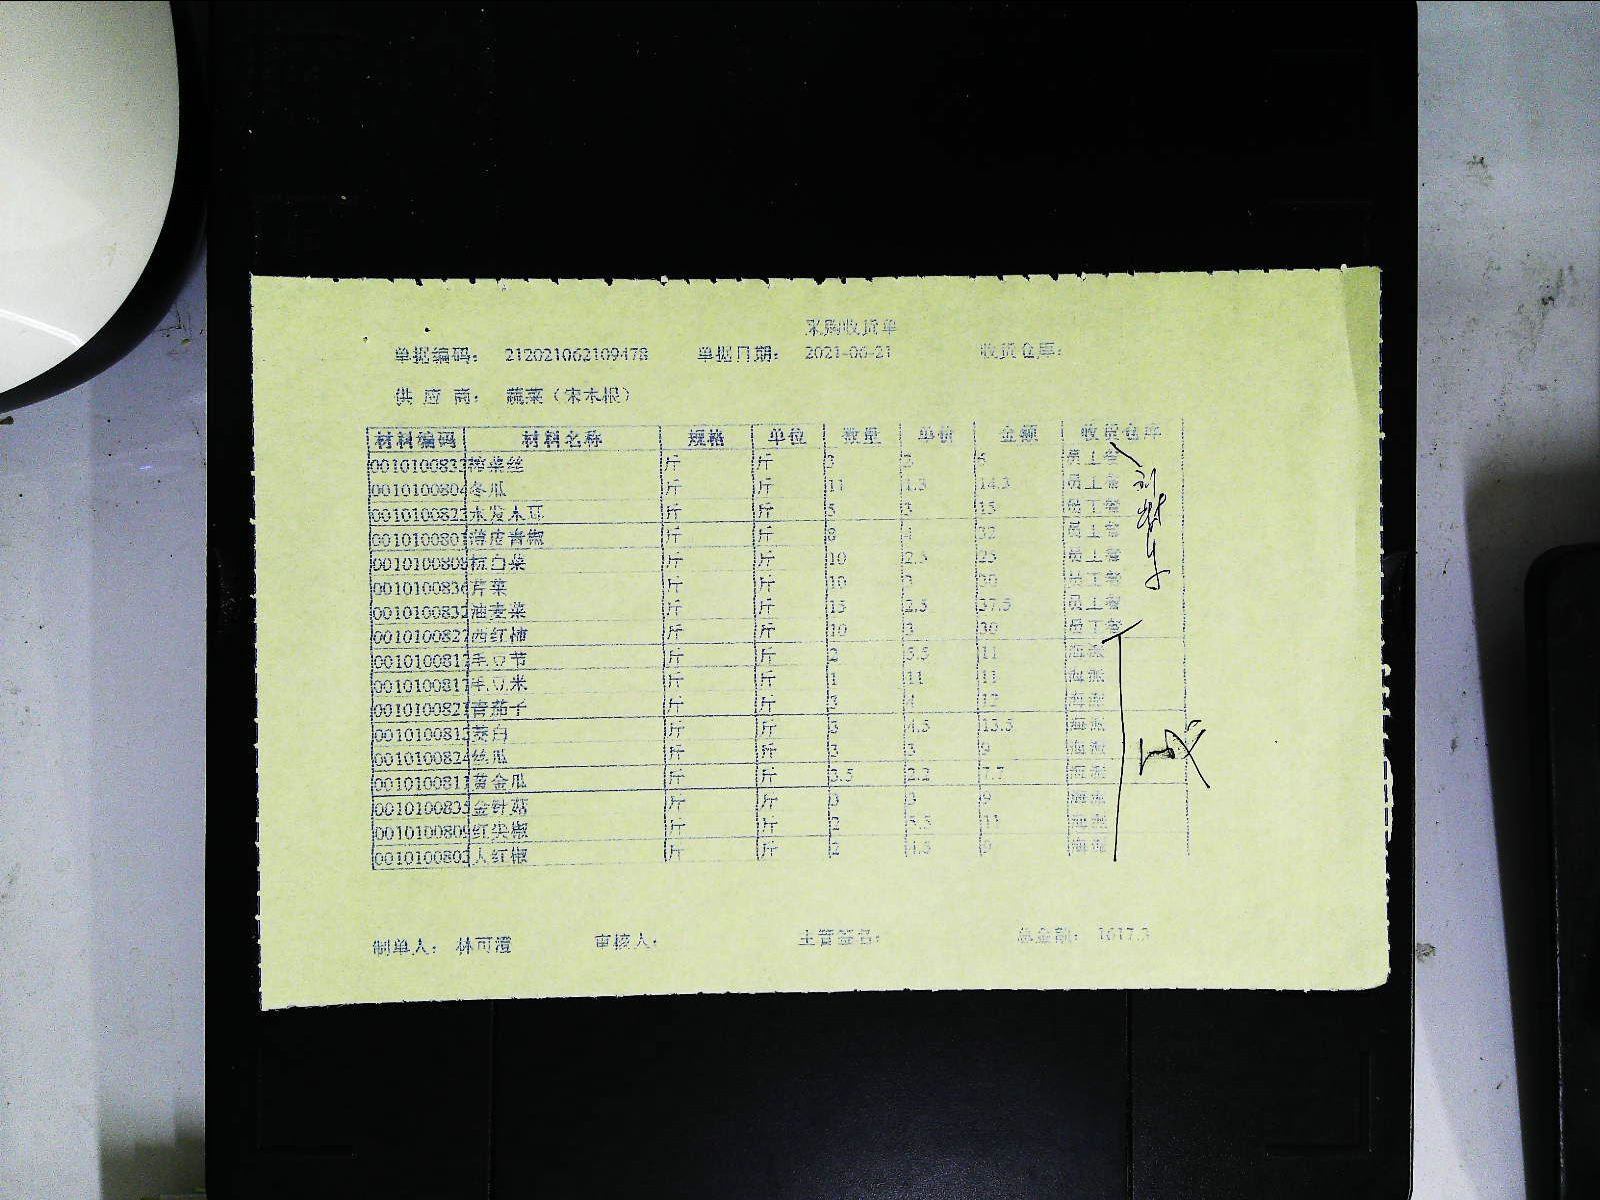 采购收货单
单据编码： 212021062109478 单据日期： 2021-06-21 收货仓库：
供 应 商： 蔬菜（宋木根）
材料编码 材料名称 规格 单位 数量 单价 金额 收货仓库
0010100833 榨菜丝 斤 斤 3 2 6 员工餐
0010100804 冬瓜 斤 斤 11 1.3 14.3 员工餐
0010100823 水发木耳 斤 斤 5 3 15 员工餐
0010100801 薄皮青椒 斤 斤 8 4 32 员工餐
0010100808 斤 斤 10 2.5 25 员工餐
0010100836 芹菜 斤 斤 10 3 30 员工餐
0010100832 油麦菜 斤 斤 15 2.5 37.5 员工餐
0010100827 西红柿 斤 斤 10 3 30 员工餐
0010100817 毛豆节 斤 斤 2 5.5 11 海派
0010100817 毛豆米 斤 斤 1 11 11 海派
0010100821 青茄子 斤 斤 3 4 12 海派
0010100813 茭白 斤 斤 3 4.5 13.5 海派
0010100824 丝瓜 斤 斤 3 3 9 海派
0010100811 黄金瓜 斤 斤 3.5 2.2 7.7 海派
0010100835 金针菇 斤 斤 3 3 9 海派
0010100809 红尖椒 斤 斤 2 5.5 11 海派
0010100803 大红椒 斤 斤 2 4.5 9 海派
制单人： 林可澧 审核人： 主管签名： 总金额： 1017.3